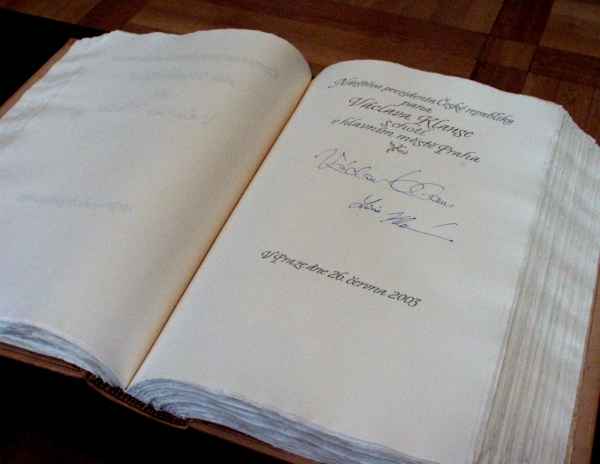 Návštěva prezidenta České republiky
pana
Václava Klause
s chotí
v hlavním městě Praha
Václav Klaus
V Praze dne 26. června 2003